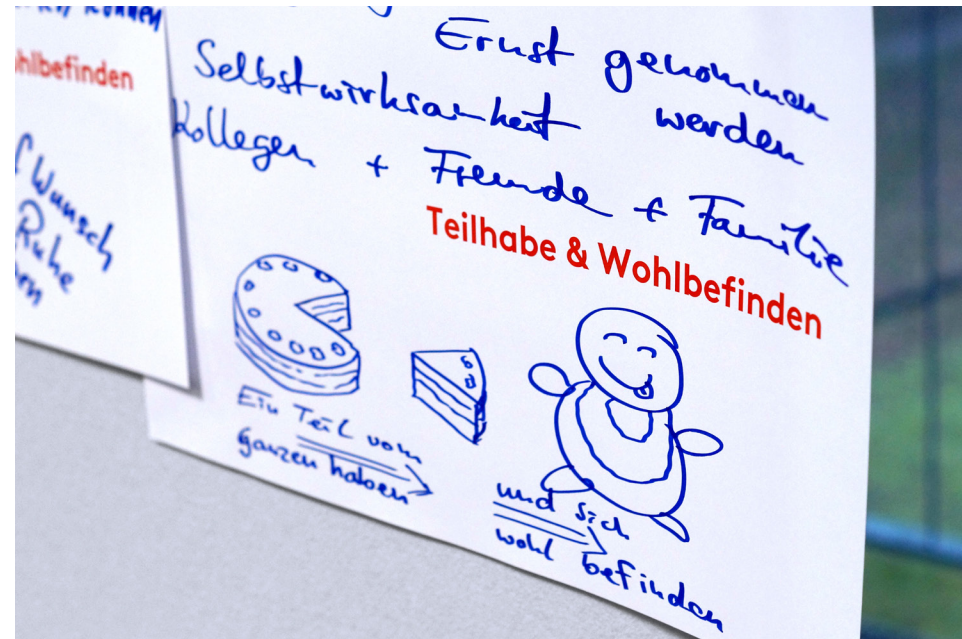 können
hlbefinden
Wunsch
Ruhe
Ernst genommen
Selbstwirksamkeit werden
Kollegen + Freunde + Familie
Teilhabe & Wohlbefinden
Ein Teil vom
ganzen haben
und sich
wohl befinden